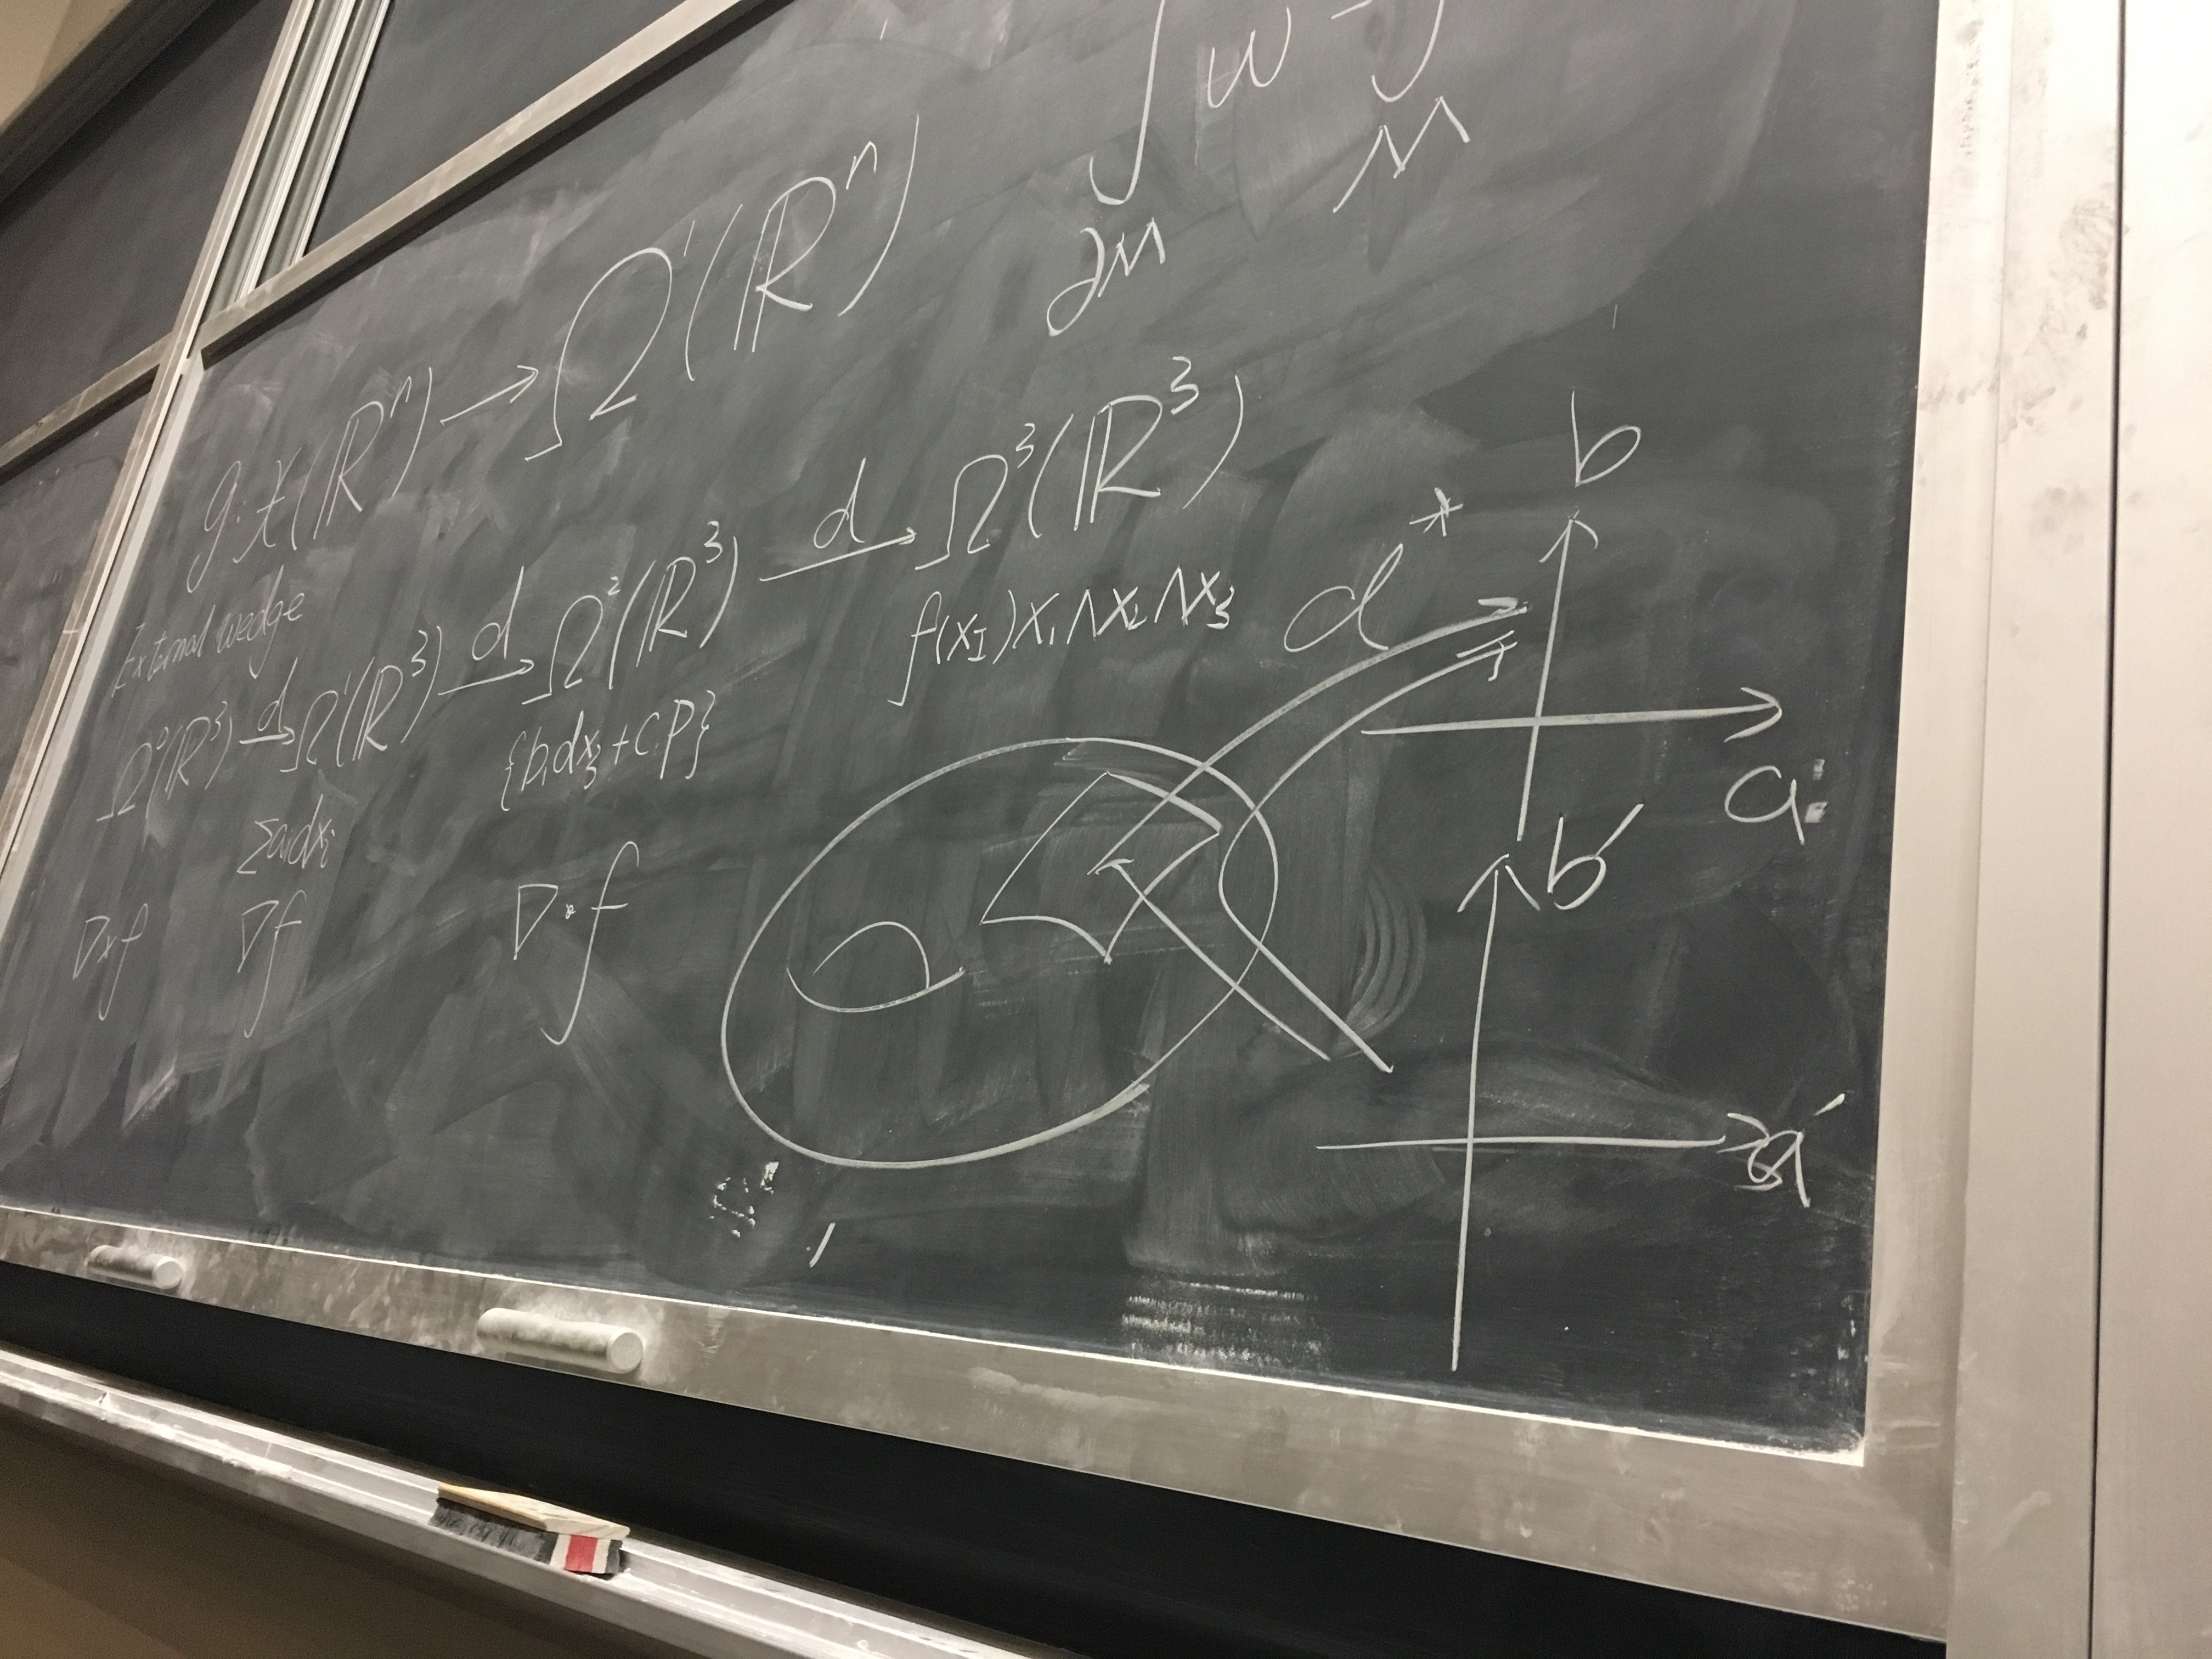 ∫_{∂M} ω = ∫_M
g: χ(ℝⁿ) → Ω¹(ℝⁿ)
External wedge
Ω⁰(ℝ³) →d Ω¹(ℝ³) →d Ω²(ℝ³) →d Ω³(ℝ³)
Σaᵢdxᵢ
{b₁dx₃ + c.p}
f(x_I)x₁∧x₂∧x₃
∇×f ∇f ∇·f
d*
b
a
b'
a'